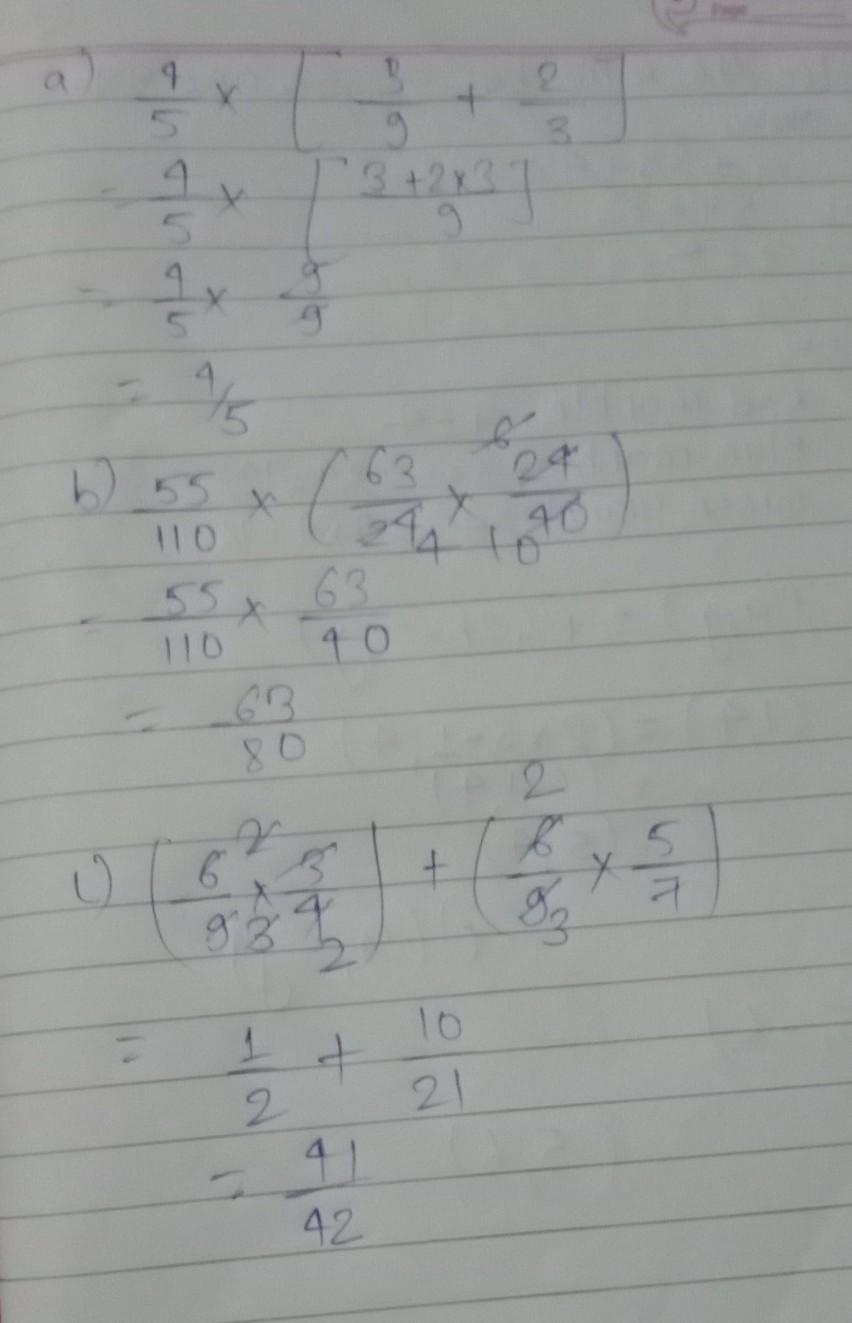 a) 4/5 × [3/9 + 2/3]
= 4/5 × [3+2×3/9]
= 4/5 × 9/9
= 4/5
b) 55/110 × (63/24 × 24/40)
= 55/110 × 63/40
= 63/80
c) (6/9 × 3/4) + (6/9 × 5/7)
= 1/2 + 10/21
= 41/42